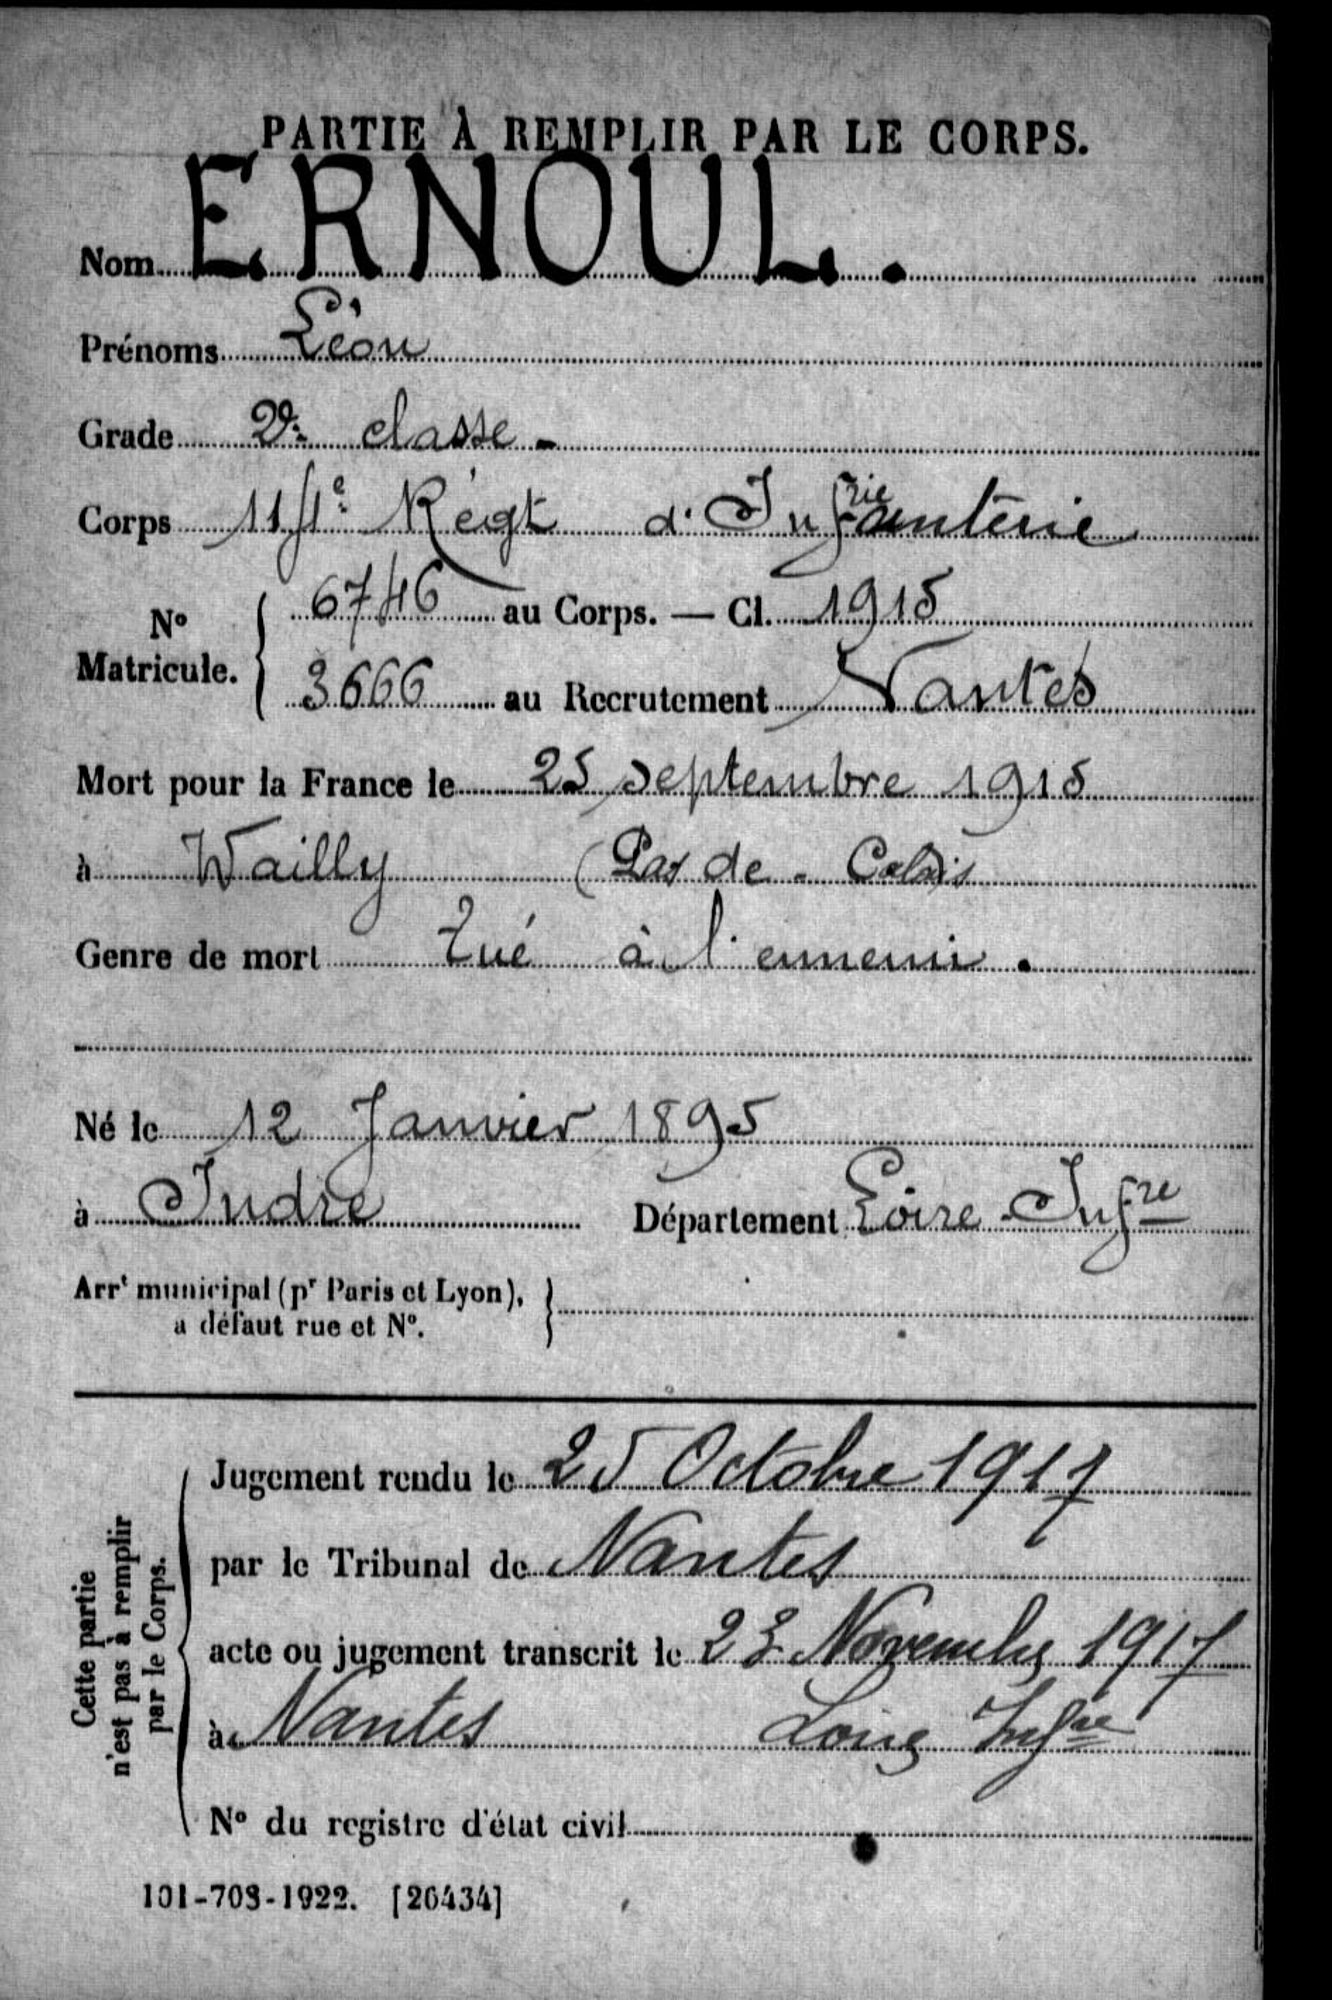 PARTIE À REMPLIR PAR LE CORPS.
Nom ERNOUL.
Prénoms Léon
Grade 2e classe -
Corps 114e Régt d'Infanterie
rie
N° Matricule. { 6746 au Corps. — Cl. 1915
3666 au Recrutement Nantes
Mort pour la France le 25 septembre 1915
à Wailly (Pas de - Calais
Genre de mort Tué à l'ennemi.
Né le 12 Janvier 1895
à Indre Département Loire-Infre
Arrt municipal (pr Paris et Lyon), }
a défaut rue et N°.
Cette partie
n'est pas à remplir
par le Corps.
Jugement rendu le 25 Octobre 1917
par le Tribunal de Nantes
acte ou jugement transcrit le 23 Novembre 1917
à Nantes Loire Infre
N° du registre d'état civil
101-708-1922. [26434]